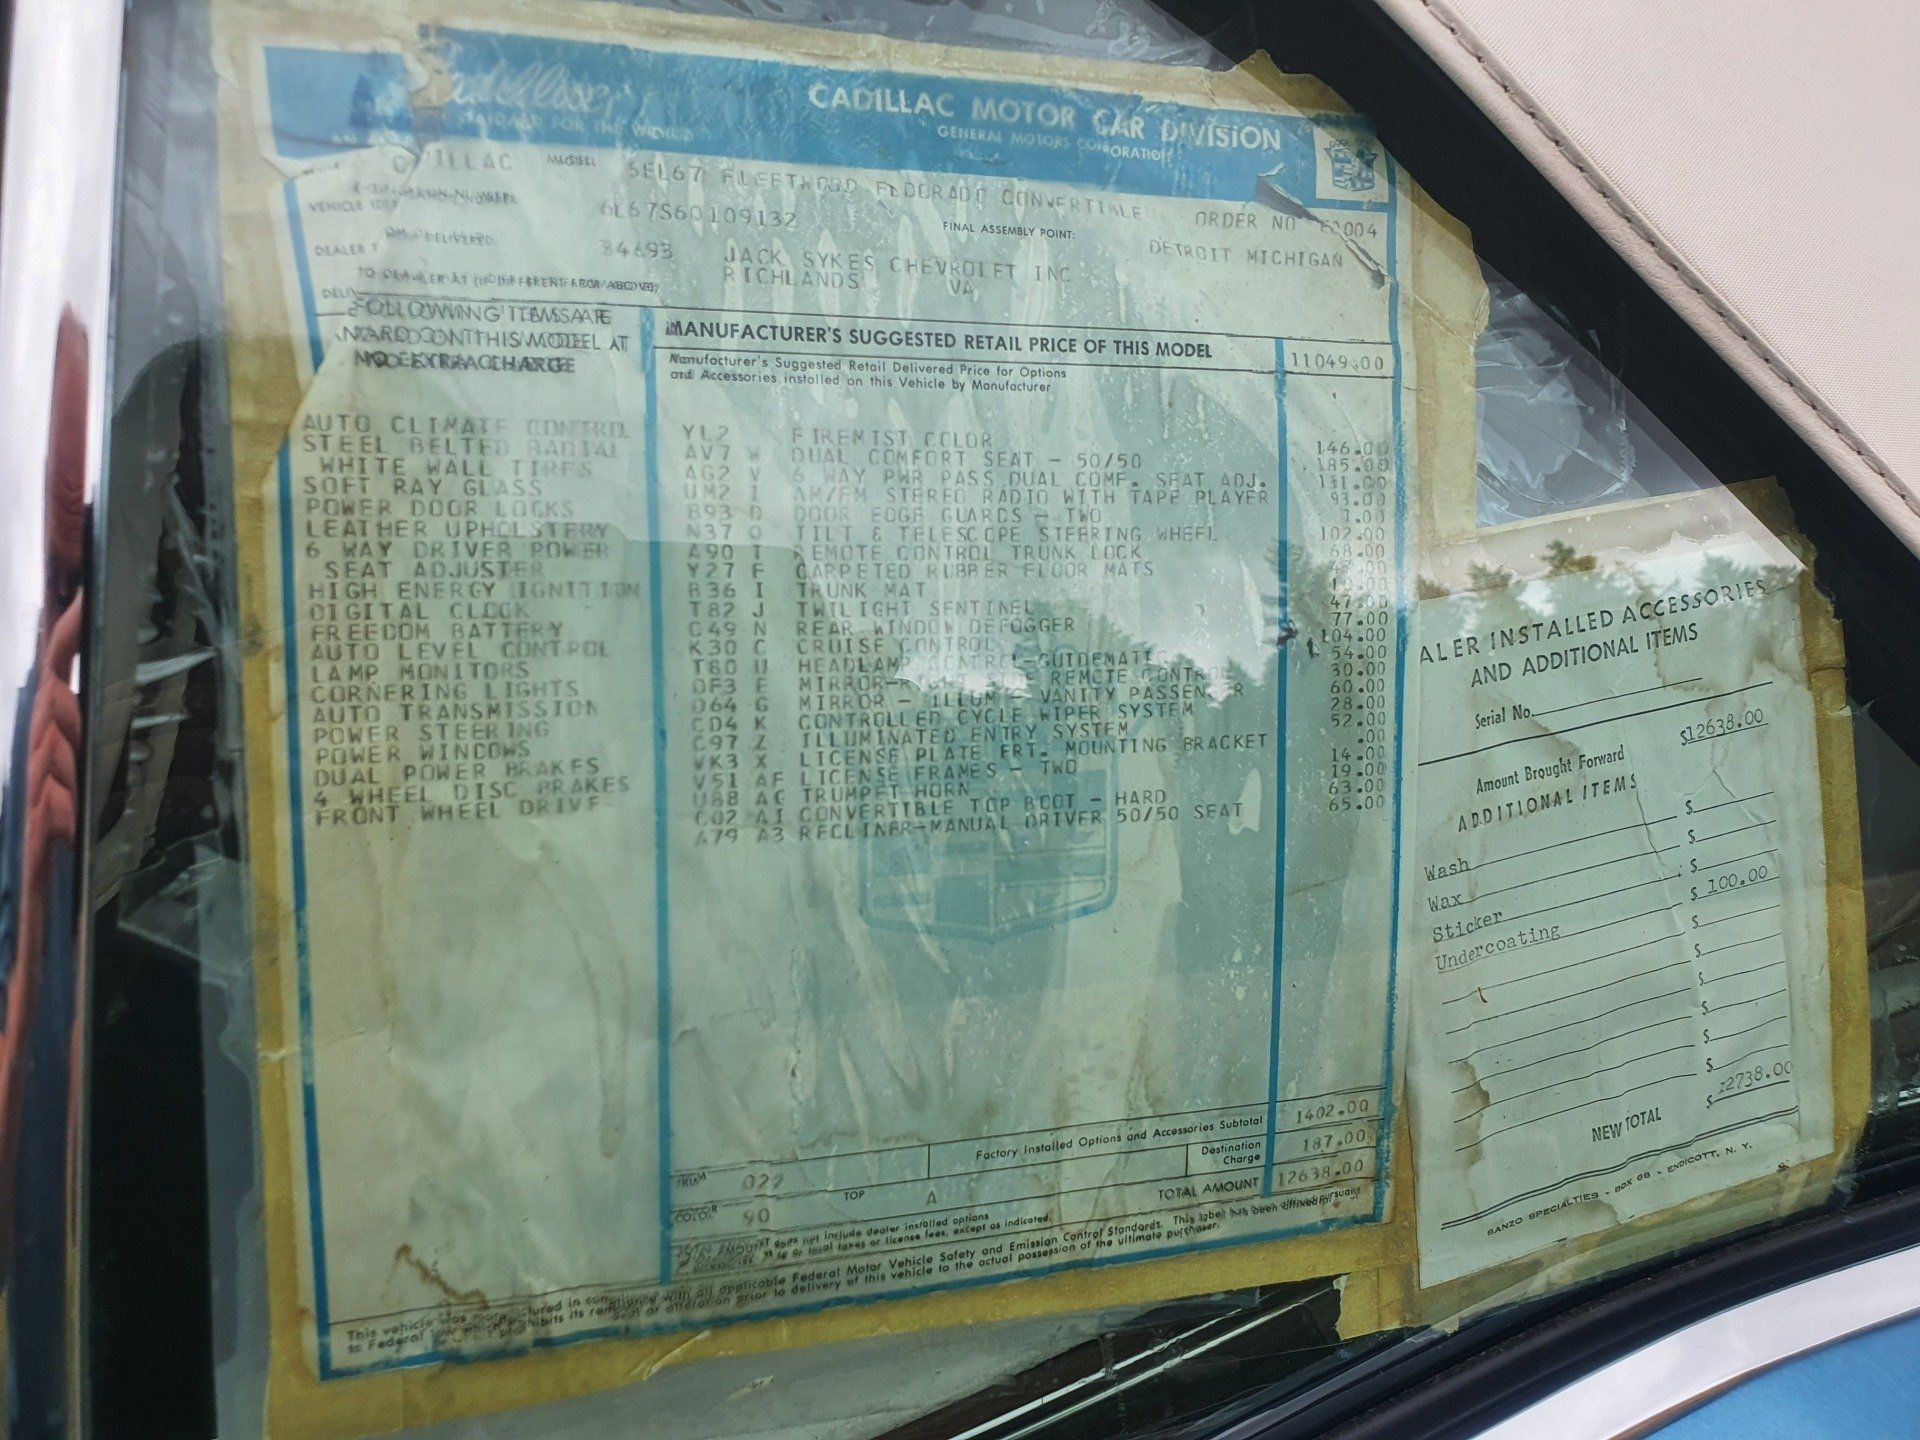 Cadillac
STANDARD FOR THE WORLD
CADILLAC MOTOR CAR DIVISION
GENERAL MOTORS CORPORATION
MODEL: SEL67 FLEETWOOD ELDORADO CONVERTIBLE
ORDER NO
VEHICLE 6L67S60109132
FINAL ASSEMBLY POINT:
DETROIT MICHIGAN
DEALER DELIVERED: 34693 JACK SYKES CHEVROLET INC
RICHLANDS VA
FOLLOWING ITEMS ARE
ON THIS MODEL AT
NO EXTRA CHARGE
MANUFACTURER'S SUGGESTED RETAIL PRICE OF THIS MODEL 11049.00
Manufacturer's Suggested Retail Delivered Price for Options
and Accessories installed on this Vehicle by Manufacturer
AUTO CLIMATE CONTROL
STEEL BELTED RADIAL
WHITE WALL TIRES
SOFT RAY GLASS
POWER DOOR LOCKS
LEATHER UPHOLSTERY
6 WAY DRIVER POWER
SEAT ADJUSTER
HIGH ENERGY IGNITION
DIGITAL CLOCK
FREEDOM BATTERY
AUTO LEVEL CONTROL
LAMP MONITORS
CORNERING LIGHTS
AUTO TRANSMISSION
POWER STEERING
POWER WINDOWS
DUAL POWER BRAKES
4 WHEEL DISC BRAKES
FRONT WHEEL DRIVE
YL2 FIREMIST COLOR 146.00
AV7 W DUAL COMFORT SEAT - 50/50 185.00
AG2 V 6 WAY PWR PASS DUAL COMF. SEAT ADJ. 131.00
UM2 I AM/FM STEREO RADIO WITH TAPE PLAYER 93.00
B93 D DOOR EDGE GUARDS - TWO 7.00
N37 O TILT & TELESCOPE STEERING WHEEL 102.00
A90 I REMOTE CONTROL TRUNK LOCK 68.00
Y27 F CARPETED RUBBER FLOOR MATS
B36 I TRUNK MAT
T82 J TWILIGHT SENTINEL 47.00
C49 N REAR WINDOW DEFOGGER 77.00
K30 C CRUISE CONTROL 104.00
T80 U HEADLAMP CONTROL-GUIDEMATIC 54.00
DF3 E MIRROR-RIGHT SIDE REMOTE CONTROL 30.00
D64 G MIRROR - ILLUM. VANITY PASSENGER 60.00
CD4 K CONTROLLED CYCLE WIPER SYSTEM 28.00
C97 Z ILLUMINATED ENTRY SYSTEM 52.00
VK3 X LICENSE PLATE FRT. MOUNTING BRACKET .00
V51 AF LICENSE FRAMES - TWO 14.00
U8B AG TRUMPET HORN 19.00
C02 AI CONVERTIBLE TOP BOOT - HARD 63.00
A79 A3 RECLINER-MANUAL DRIVER 50/50 SEAT 65.00
Factory Installed Options and Accessories Subtotal 1402.00
TRIM 022 Destination Charge 187.00
COLOR 90 TOP A TOTAL AMOUNT 12638.00
TOTAL AMOUNT does not include dealer installed options
state or local taxes or license fees, except as indicated.
This vehicle was manufactured in compliance with all applicable Federal Motor Vehicle Safety and Emission Control Standards. This label has been affixed pursuant
to Federal prohibits its removal or alteration prior to delivery of this vehicle to the actual possession of the ultimate purchaser.
ALER INSTALLED ACCESSORIES
AND ADDITIONAL ITEMS
Serial No.
Amount Brought Forward $12638.00
ADDITIONAL ITEMS
Wash $
Wax $
Sticker $
Undercoating $ 100.00
$
$
$
$
$
NEW TOTAL $ 12738.00
SANZO SPECIALTIES - BOX 68 - ENDICOTT, N. Y.